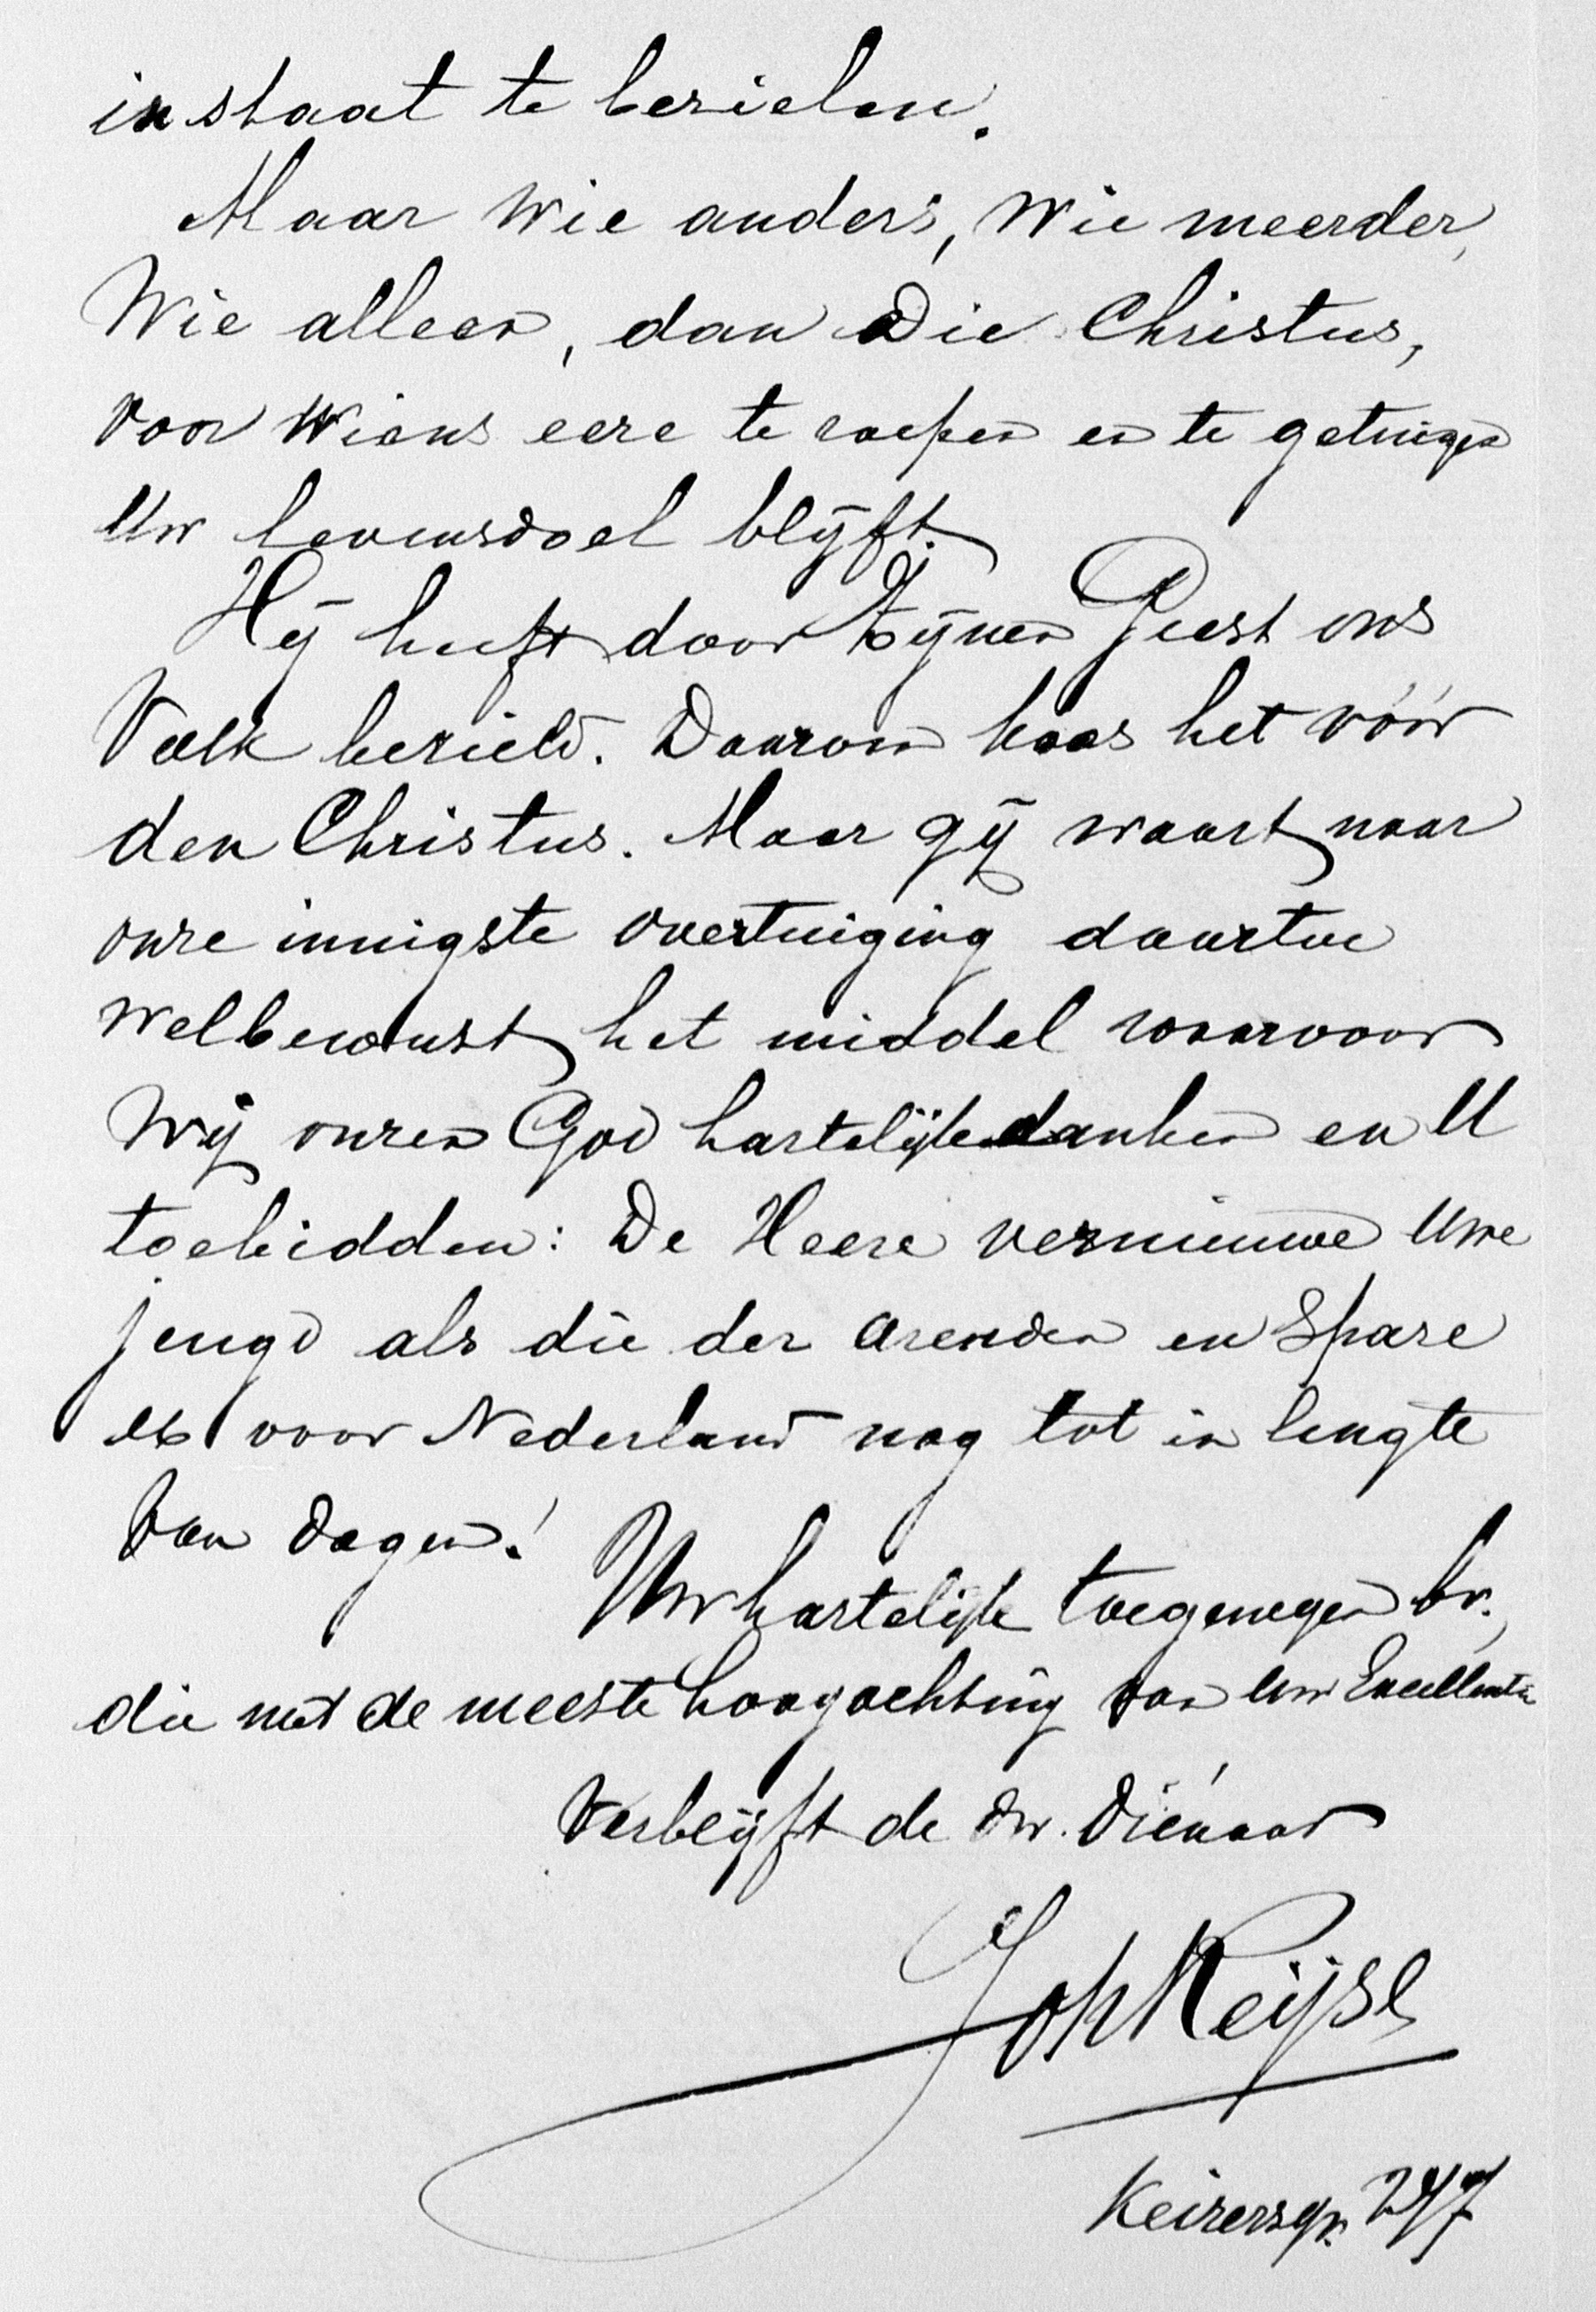 in staat te bezielen.
Maar Wie anders, Wie meerder,
Wie alleen, dan Die Christus,
voor Wiens eere te roepen en te getuigen
Uw levensdoel blijft.
Hij heeft door Zijnen Geest ons
Volk bezield. Daarom koos het vóór
den Christus. Maar gij waart naar
onze innigste overtuiging daartoe
welbewust het middel waarvoor
Wij onzen God hartelijk danken en U
toebidden: De Heere vernieuwe Uwe
jeugd als die der arenden en Spare
U voor Nederland nog tot in lengte
van dagen!
Uw hartelijk toegenegen br.,
die met de meeste hoogachting van Uw Excellentie
Verblijft de dw. dienaar
Joh Keijse
Keizersgr. 247